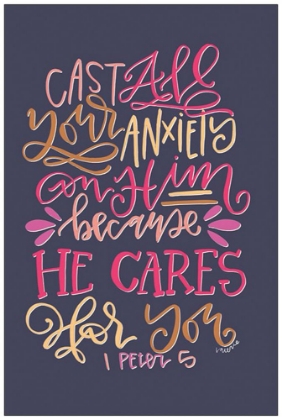 CAST All
your ANXIETY
on Him
because
HE CARES
for you
1 PETER 5